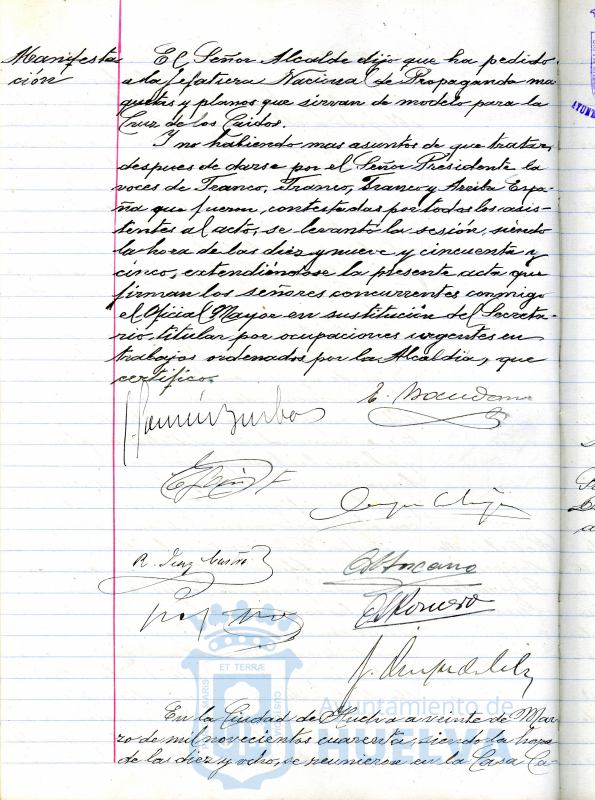 Manifesta
ción
El Señor Alcalde dijo que ha pedido
a la Jefatura Nacional de Propaganda ma
quetas y planos que sirvan de modelo para la
Cruz de los Caidos.
Y no habiendo mas asuntos de que tratar,
despues de darse por el Señor Presidente la
voces de Franco, Franco, Franco y Arriba Espa-
ña que fueron contestadas por todos los asis-
tentes al acto, se levantó la sesión, siendo
la hora de las diez y nueve y cincuenta y
cinco, extendiéndose la presente acta que
firman los señores concurrentes conmigo
el Oficial Mayor en sustitución del Secreta-
rio titular por ocupaciones urgentes en
trabajos ordenados por la Alcaldia, que
certifico.
R. Diaz
A. Romero
ET TERRÆ
Ayuntamiento de
HUELVA
En la Ciudad de Huelva a veinte de Mar-
zo de mil novecientos cuarenta, siendo la hora
de las diez y ocho, se reunieron en la Casa Ca-